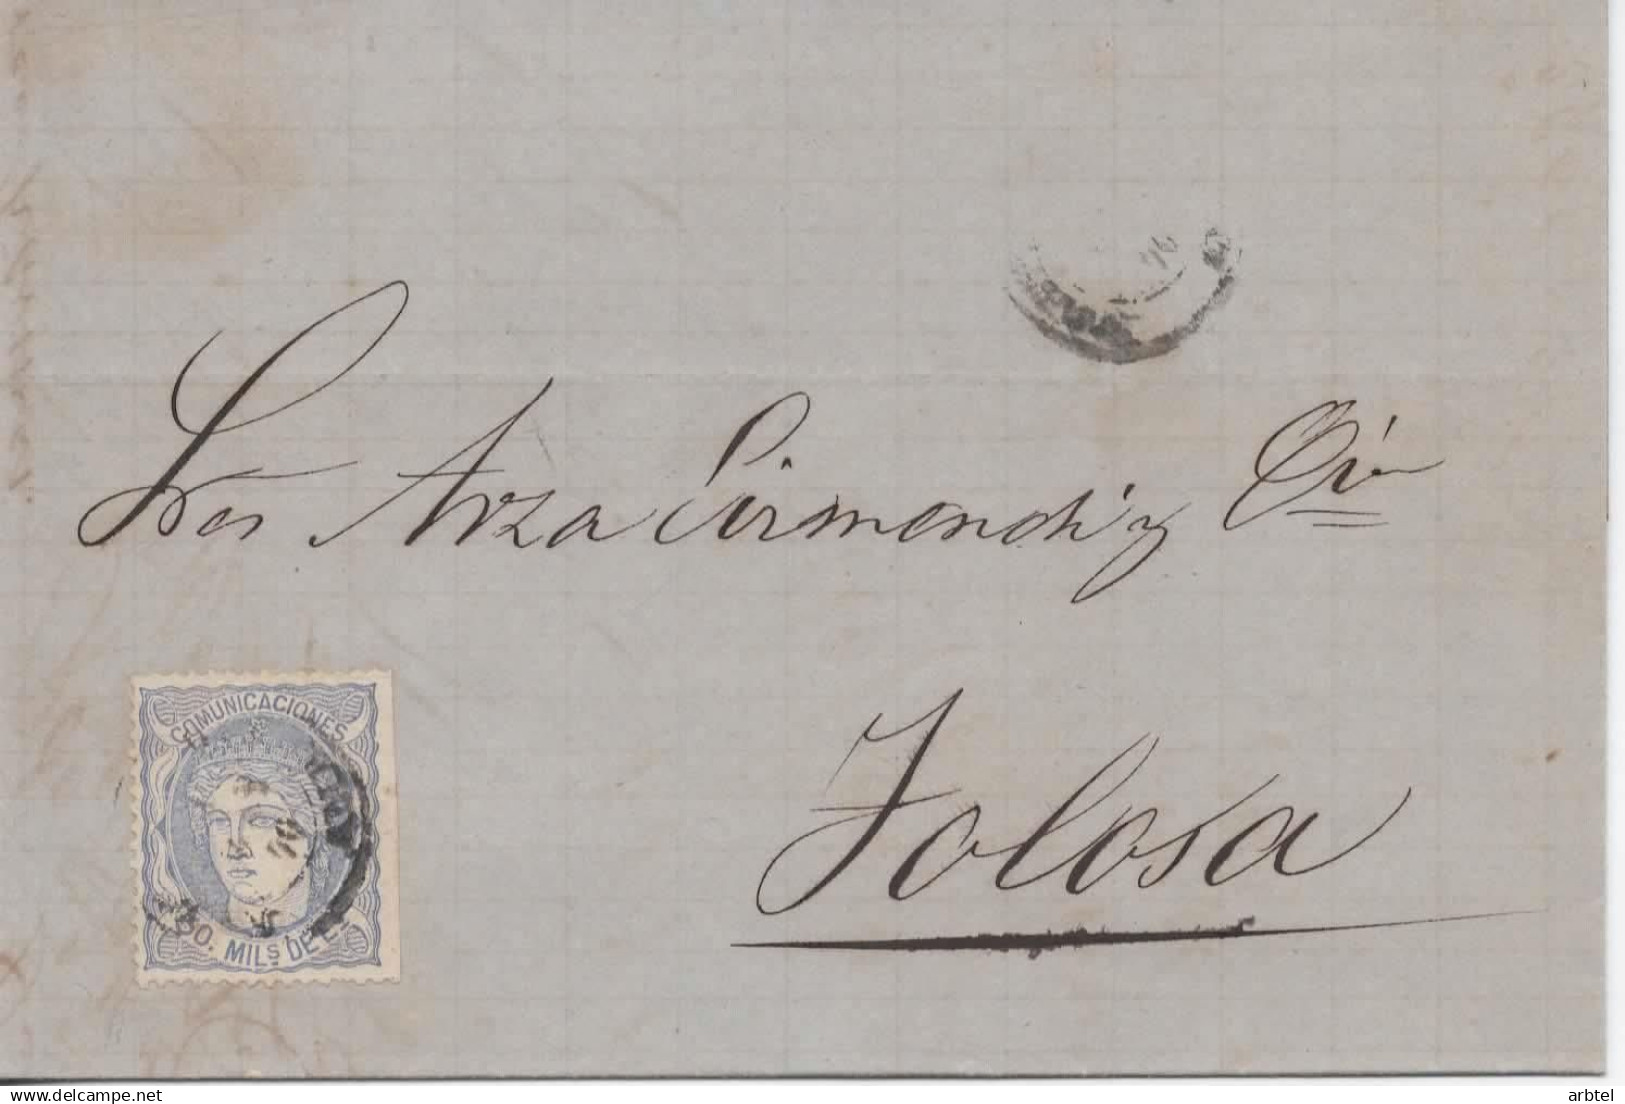 Sres Arza Sirmendi y Cía
Tolosa
COMUNICACIONES
50. MILS DE E.
delcampe.net
arbtel